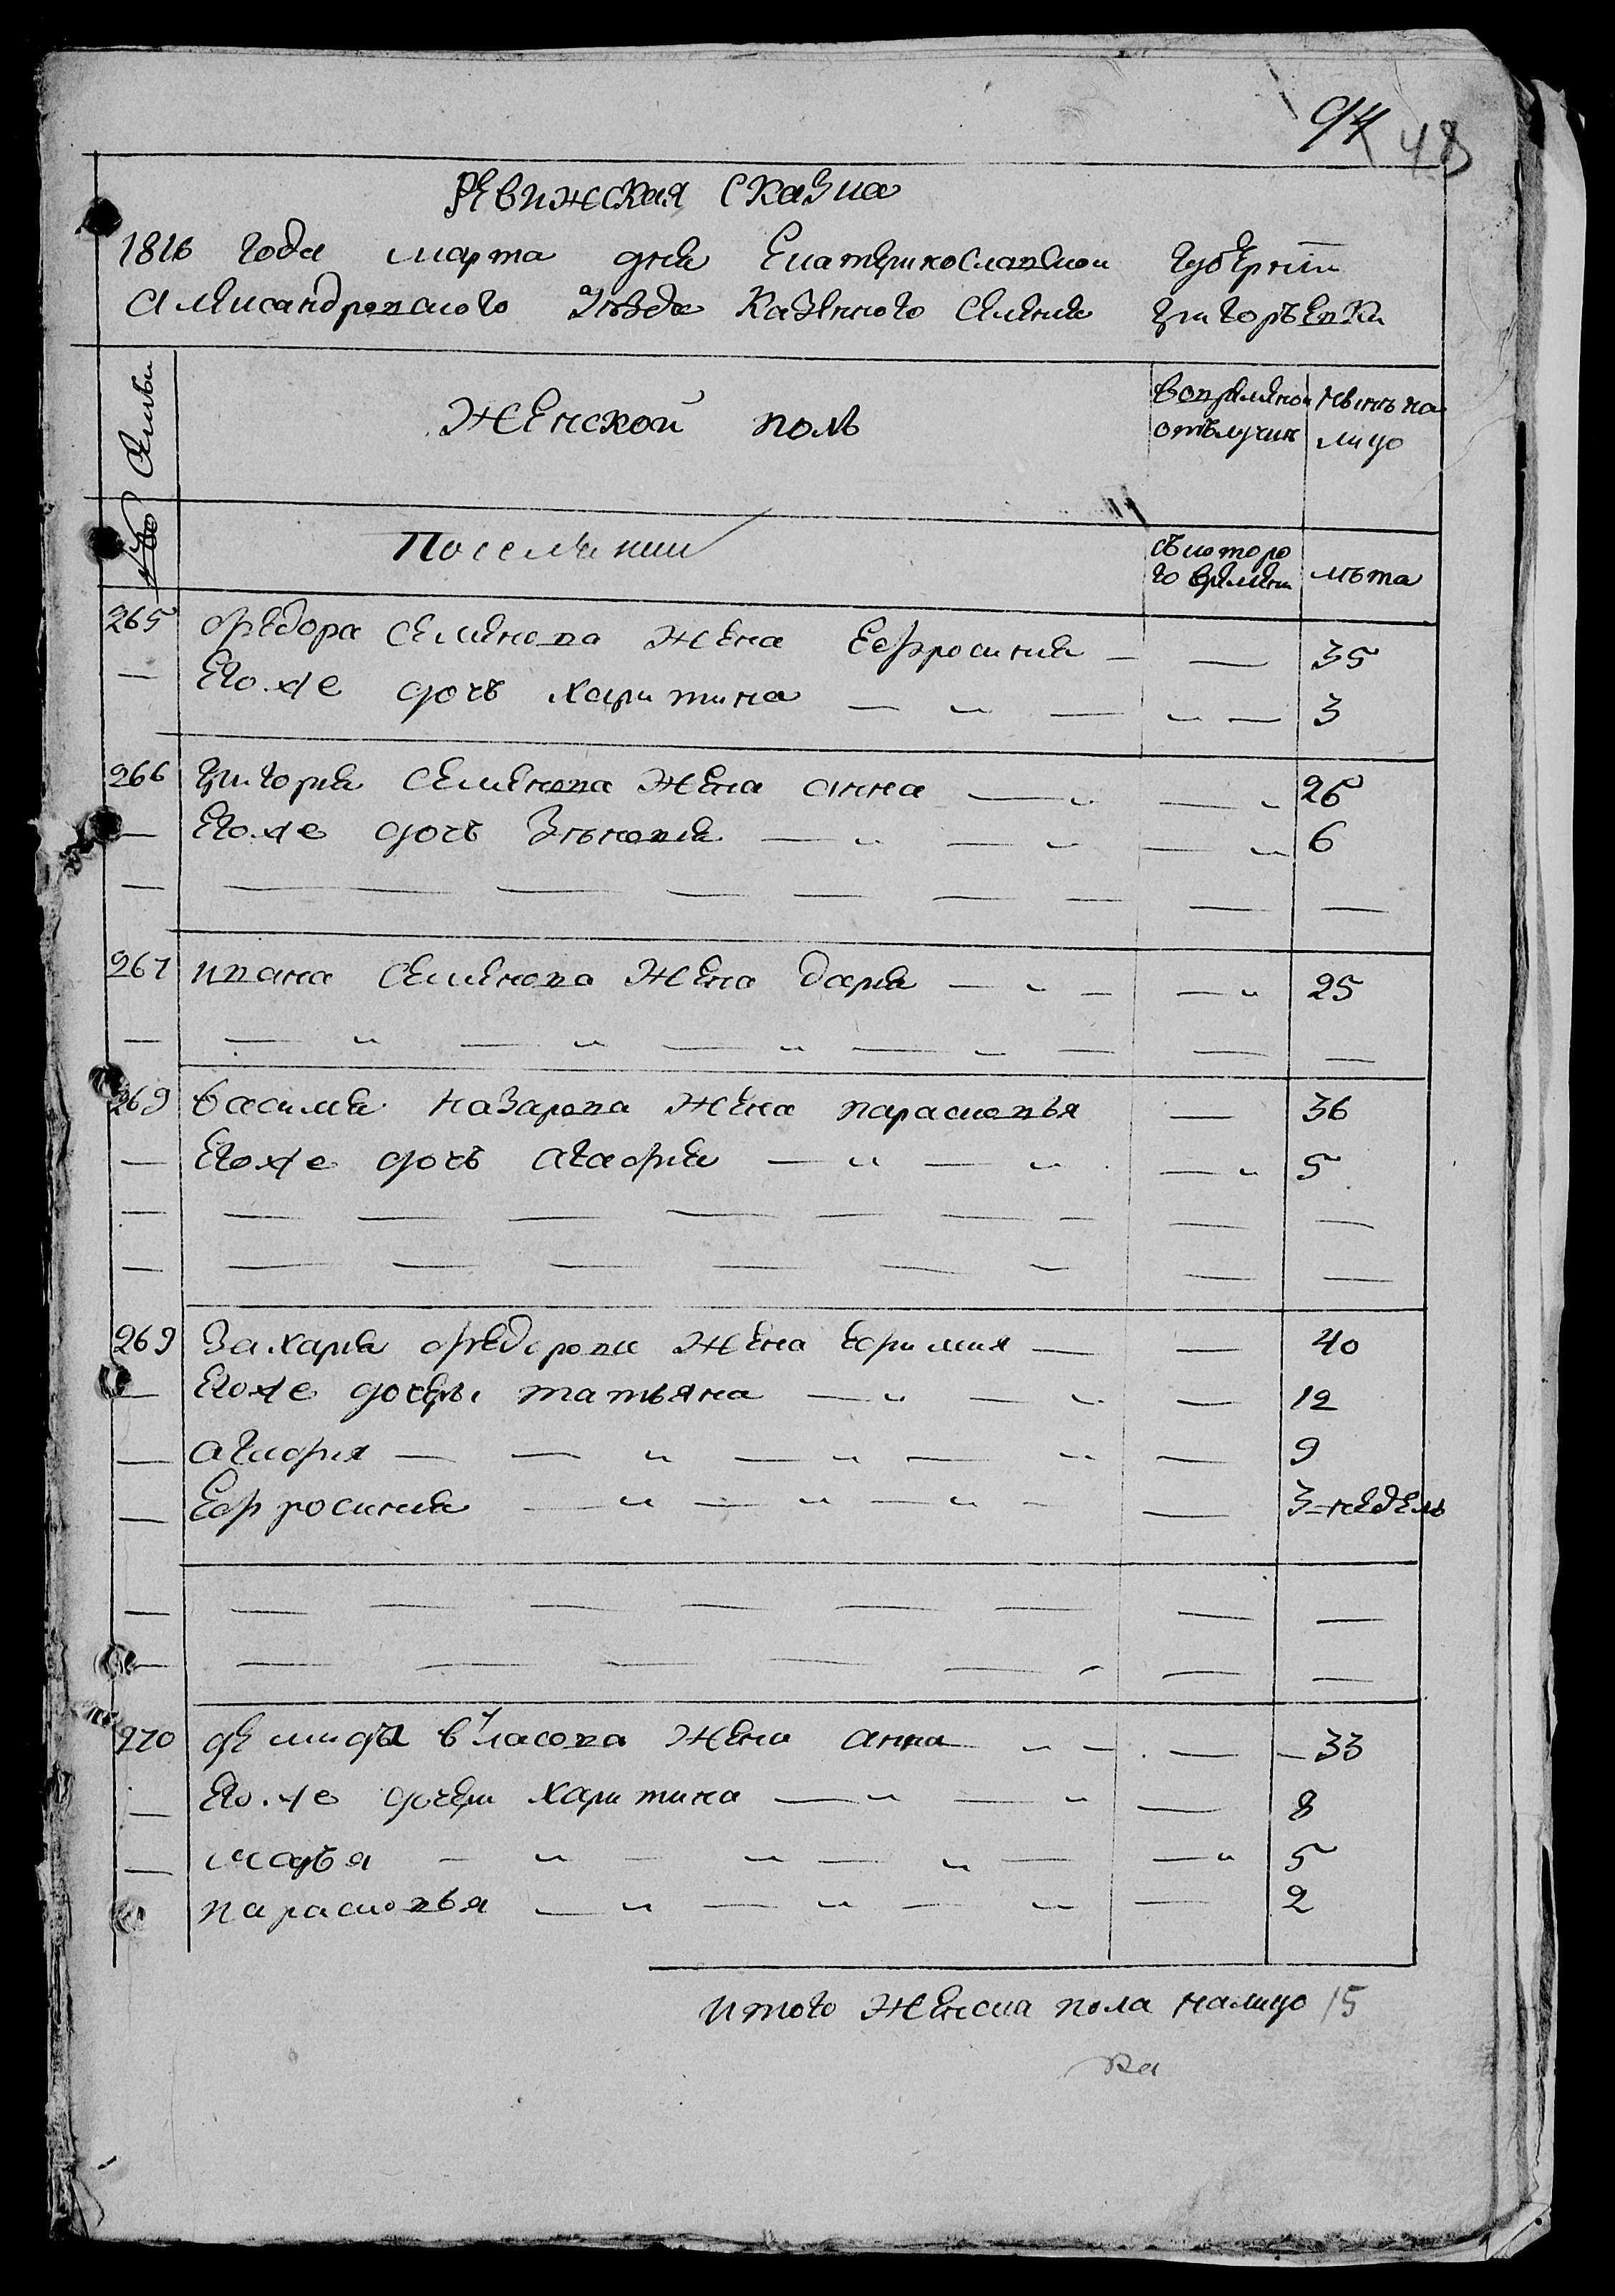 94 48
Ревижская сказка
1816 года марта дня Екатеринославской губернии
Александровского уезда казенного селения Григорьевки
№ Семьи
Женской полъ
вопременой отълучки
Нынѣ на лицо
Поселянии
съкоторого времени
лѣта
265 Федора Семенова жена Ефросиния — — 35
— Его же дочь Харитина — „ — „ — 3
266 Григория Семенова жена Анна — „ — „ 26
— Его же дочь Зѣновия — „ — „ — „ 6
267 Ивана Семенова жена Дария — „ — — „ 25
269 Василия Назарова жена Парасковья — 36
— Его же дочь Агафия — „ — „ — „ 5
269 Захария Федорова жена Ефимия — — 40
— Его же дочери Татьяна — „ — „ — 12
— Агафия — — „ — „ — „ — 9
— Ефросиния — „ — „ — „ — — 3 недель
270 Демида Власова жена Анна „ — — 33
— Его же дочери Харитина — „ — „ — 8
— Марья — „ — „ — „ — — „ 5
Парасковья — „ — „ — „ — 2
Итого женска пола налицо 15